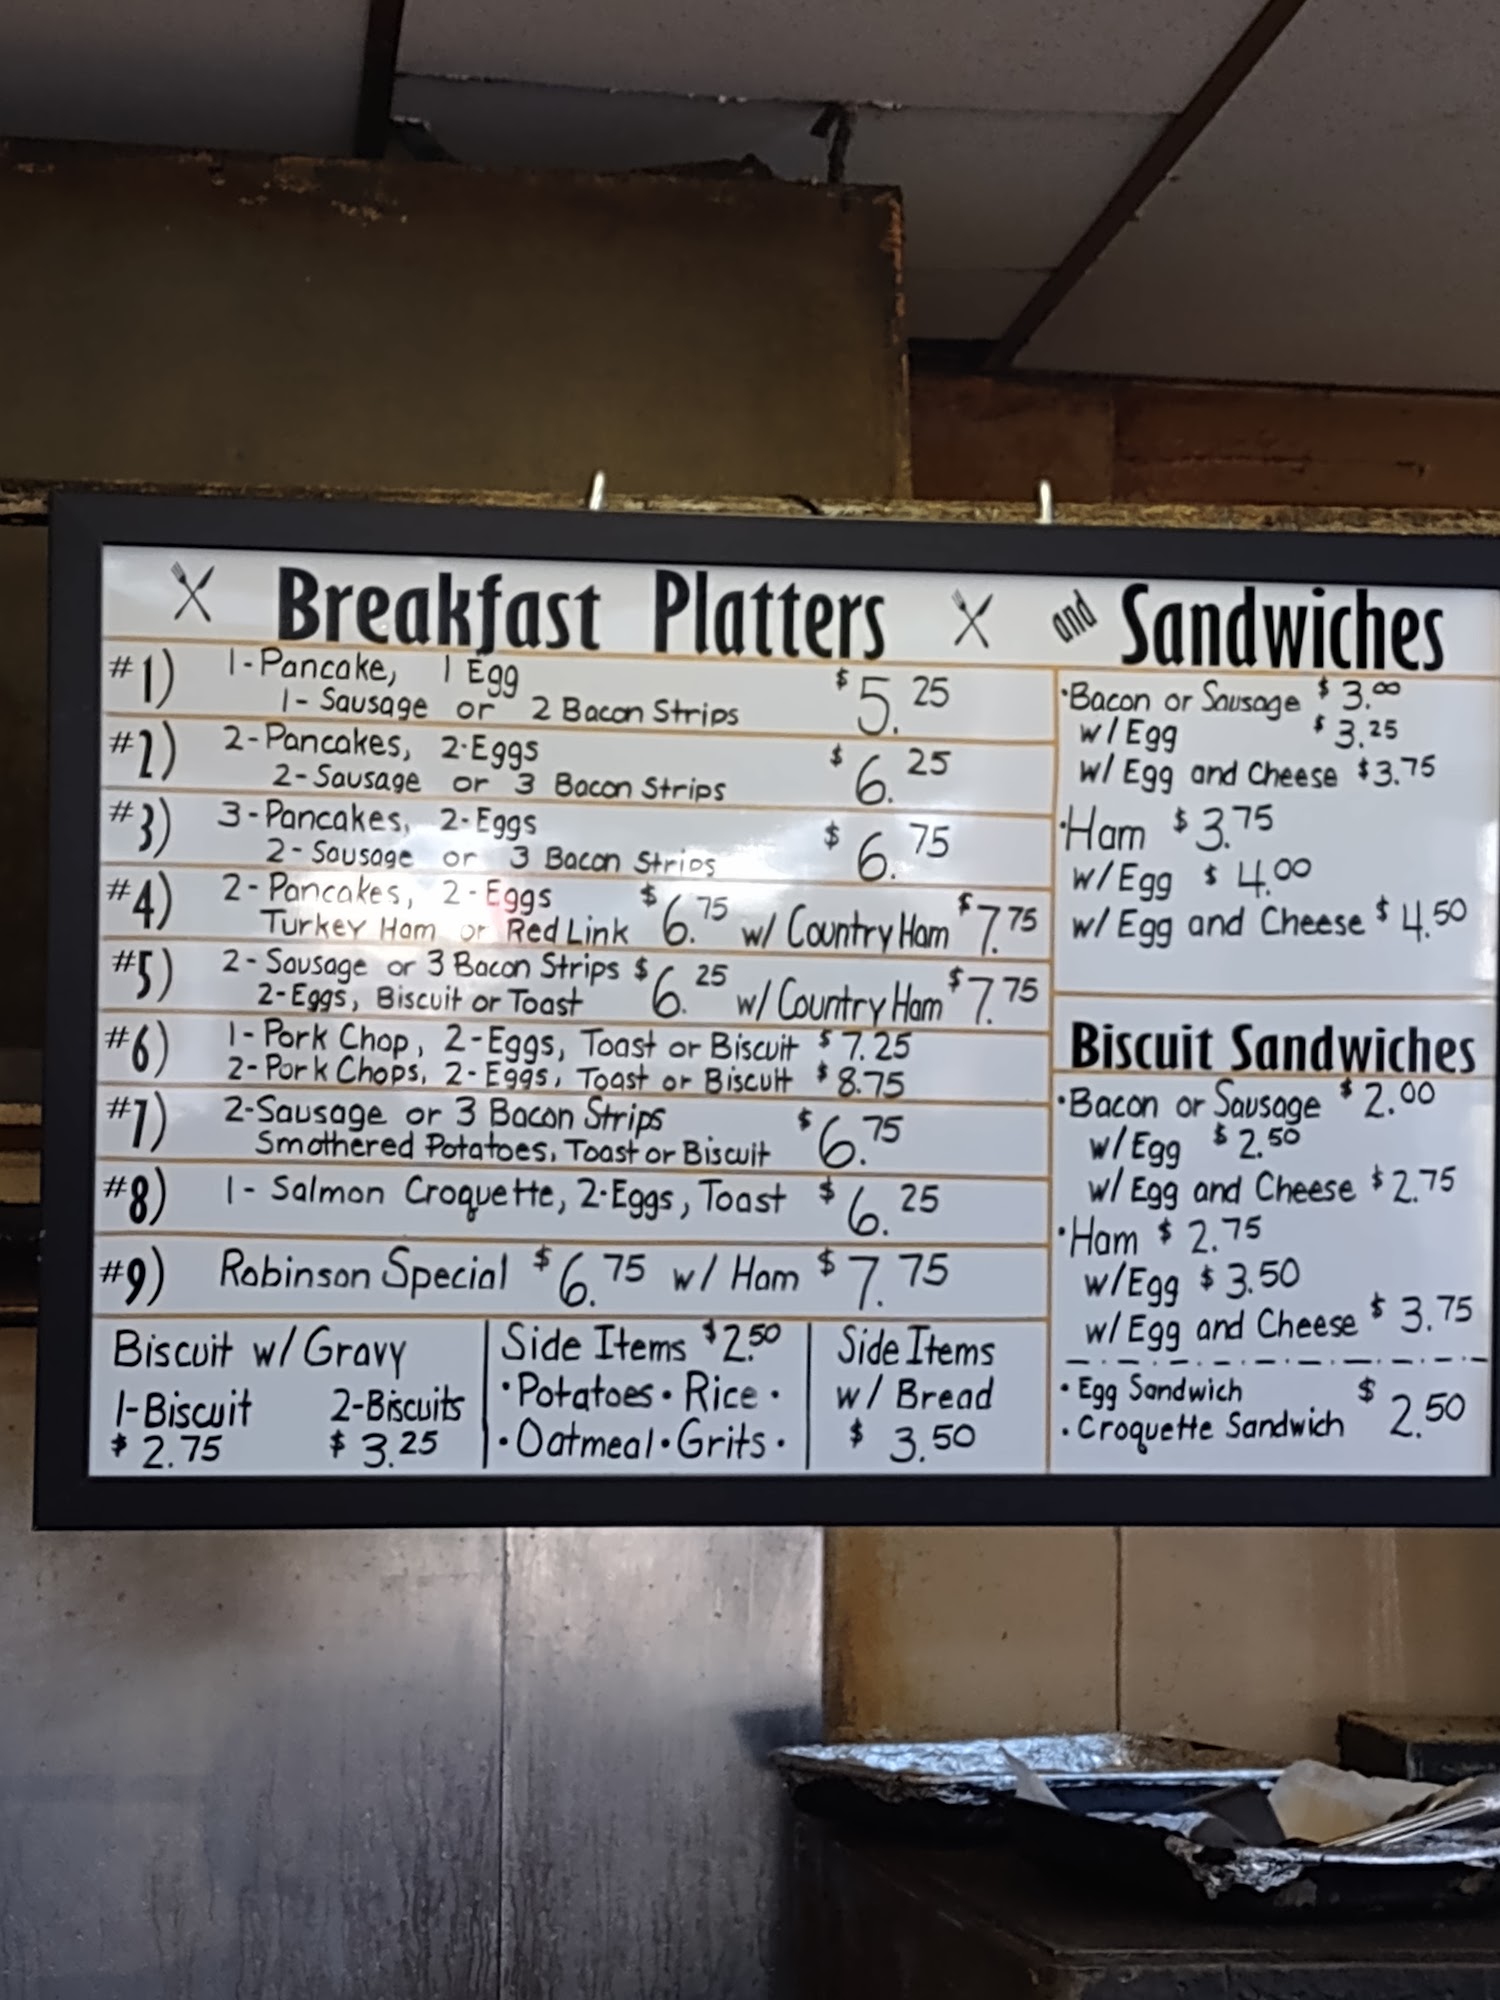 Breakfast Platters and Sandwiches
#1) 1-Pancake, 1 Egg
1-Sausage or 2 Bacon Strips $5.25
#2) 2-Pancakes, 2-Eggs
2-Sausage or 3 Bacon Strips $6.25
#3) 3-Pancakes, 2-Eggs
2-Sausage or 3 Bacon Strips $6.75
#4) 2-Pancakes, 2-Eggs
Turkey Ham or Red Link $6.75 w/ Country Ham $7.75
#5) 2-Sausage or 3 Bacon Strips $6.25 w/ Country Ham $7.75
2-Eggs, Biscuit or Toast
#6) 1-Pork Chop, 2-Eggs, Toast or Biscuit $7.25
2-Pork Chops, 2-Eggs, Toast or Biscuit $8.75
#7) 2-Sausage or 3 Bacon Strips $6.75
Smothered Potatoes, Toast or Biscuit
#8) 1-Salmon Croquette, 2-Eggs, Toast $6.25
#9) Robinson Special $6.75 w/ Ham $7.75
Biscuit w/ Gravy
1-Biscuit 2-Biscuits
$2.75 $3.25
Side Items $2.50
•Potatoes•Rice•
•Oatmeal•Grits•
Side Items
w/ Bread
$3.50
•Bacon or Sausage $3.00
w/Egg $3.25
w/ Egg and Cheese $3.75
•Ham $3.75
w/Egg $4.00
w/ Egg and Cheese $4.50
Biscuit Sandwiches
•Bacon or Sausage $2.00
w/Egg $2.50
w/ Egg and Cheese $2.75
•Ham $2.75
w/Egg $3.50
w/ Egg and Cheese $3.75
•Egg Sandwich $2.50
•Croquette Sandwich